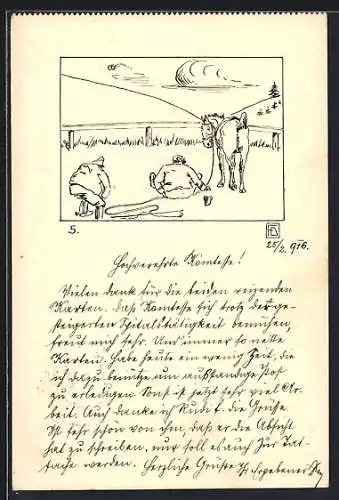 5.
25/2. 916.
Hochverehrte Komtesse!
Vielen Dank für die beiden reizenden
Karten. Daß Komtesse sich trotz der ge-
steigerten Spitalstätigkeit bemühen,
freut mich sehr. Und immer so nette
Karten. Habe heute ein wenig Zeit, die
ich dazu benütze, um ausständige Post
zu erledigen. Sonst ist jetzt sehr viel Ar-
beit. Auch danke ich Rudi f. die Grüße.
Ist sehr schön von ihm, daß er die Absicht
hat zu schreiben, nur soll es auch zur Tat-
sache werden. Herzliche Grüße Ihr ergebener